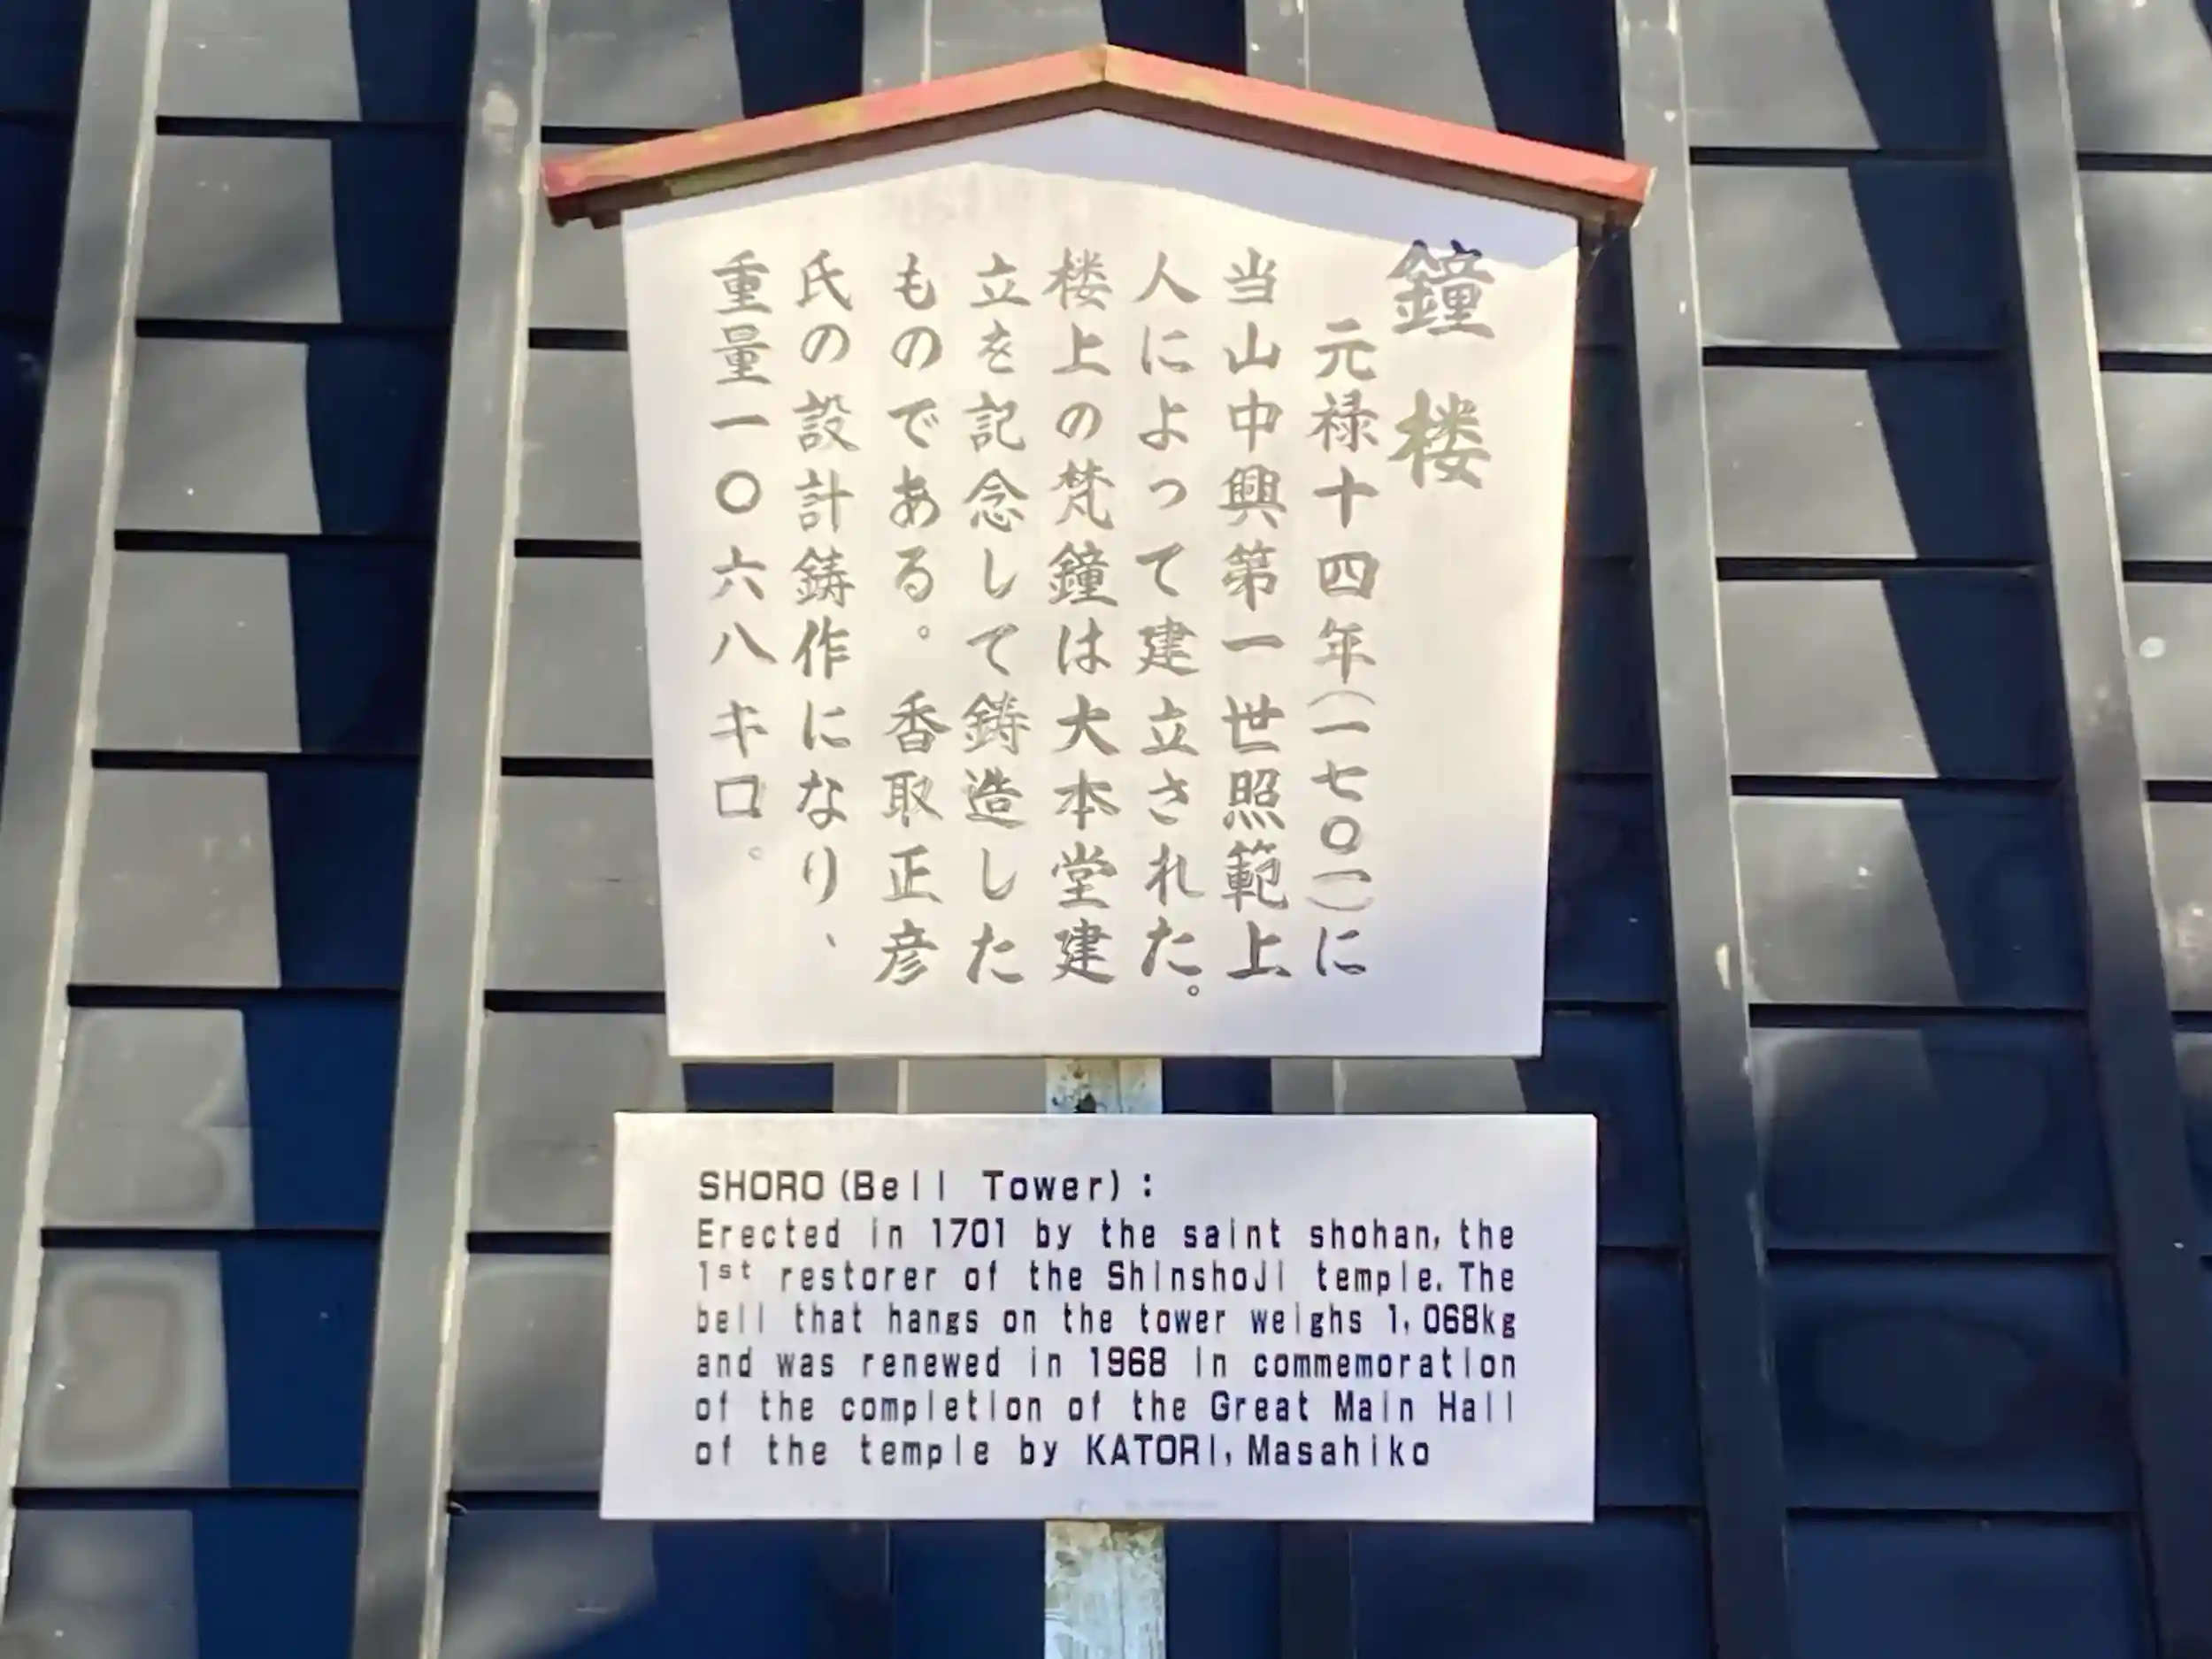 鐘楼
元禄十四年(一七〇一)に
当山中興第一世照範上
人によって建立された。
楼上の梵鐘は大本堂建
立を記念して鋳造した
ものである。香取正彦
氏の設計鋳作になり、
重量一〇六八キロ。
SHORO (Bell Tower) :
Erected in 1701 by the saint shohan, the
1st restorer of the ShinshoJi temple. The
bell that hangs on the tower weighs 1,068kg
and was renewed in 1968 in commemoration
of the completion of the Great Main Hall
of the temple by KATORI, Masahiko